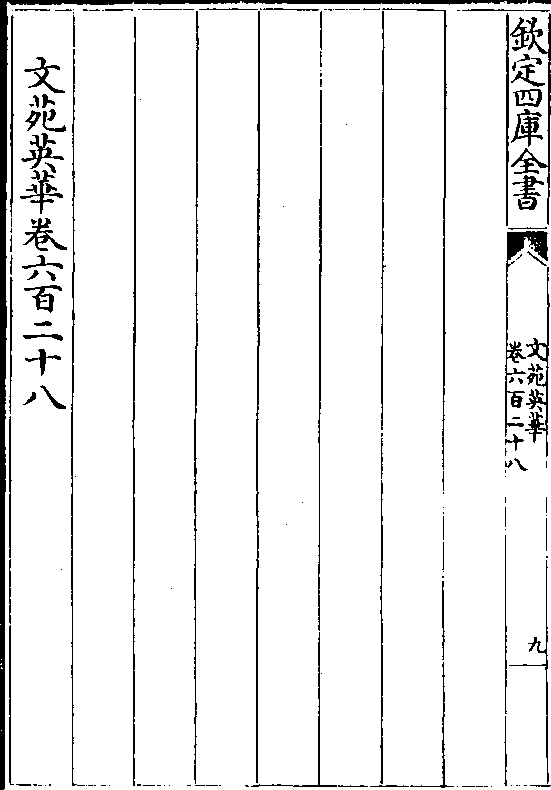 欽定四庫全書
文苑英華
卷六百二十八
九
文苑英華卷六百二十八